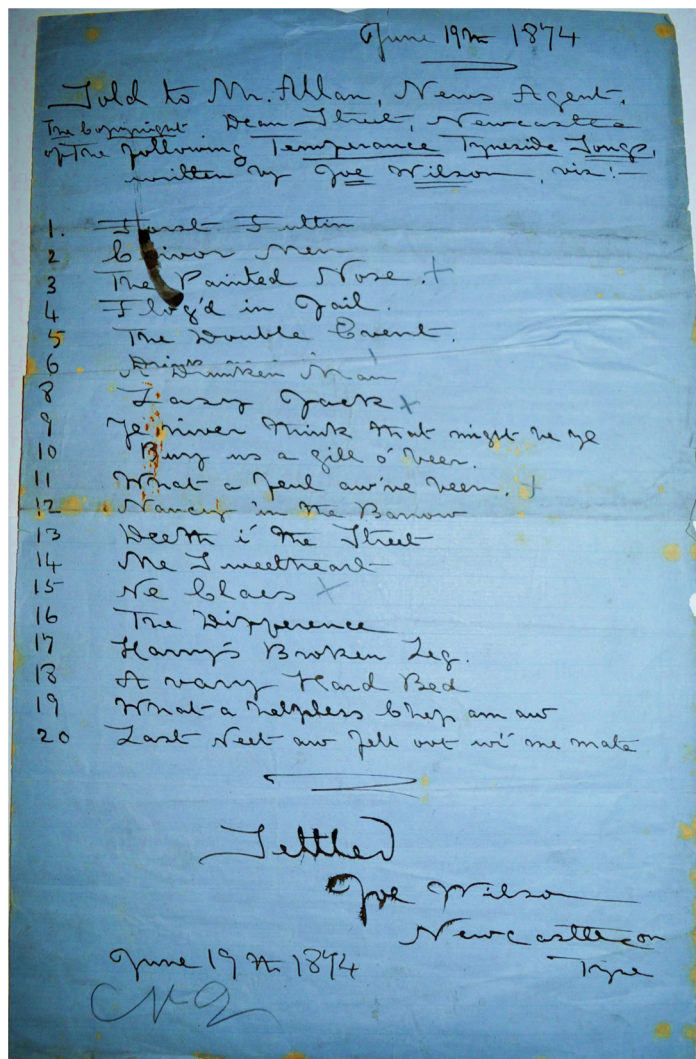 June 19th 1874
Sold to Mr. Allan, News Agent,
The Copyright Dean Street, Newcastle
of The following Temperance Tyneside Songs,
written by Joe Wilson, viz:—
1. Forst Futtin
2 Clivor Men
3 The Painted Nose. +
4 Flog'd in Jail.
5 The Double Event.
6 A Drunken Man
8 Lazy Jack x
9 Ye niver think that might be ye
10 Buy us a gill o' beer.
11 What a feul aw've been. +
12 Nancy in the Barrow
13 Deeth i' the Street
14 Me Sweetheart
15 Ne Claes x
16 The Difference
17 Harry's Broken Leg.
18 A varry Hard Bed
19 What a helpless Chep am aw
20 Last Neet aw fell oot wi' me mate
Settled
Joe Wilson
Newcastle on
Tyne
June 19th 1874